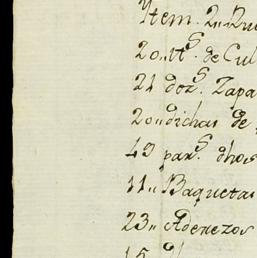 Ytem. 2,, Duc
20,, tt.S de Cul
21 doz.S Zapa
20,, dichas de
43 par.S dhos
11,, Baquetas
23,, Aderezos
15